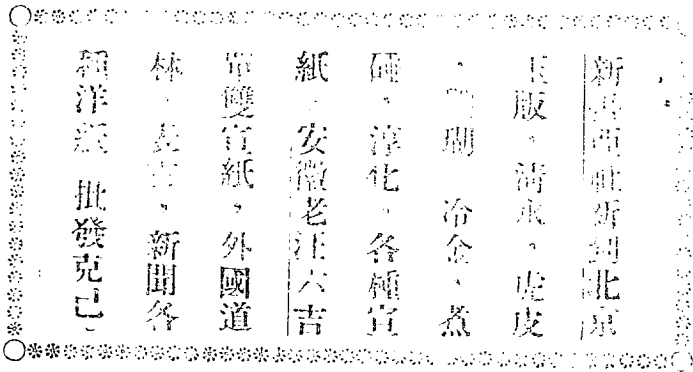 新書西社新到北京
玉版、清水、虎皮
、珊瑚 冷金、煮
硾、淳化、各種宣
紙 安徽老汪六吉
單雙宣紙、外國道
林、表古、新聞各
種洋紙 批發克己、